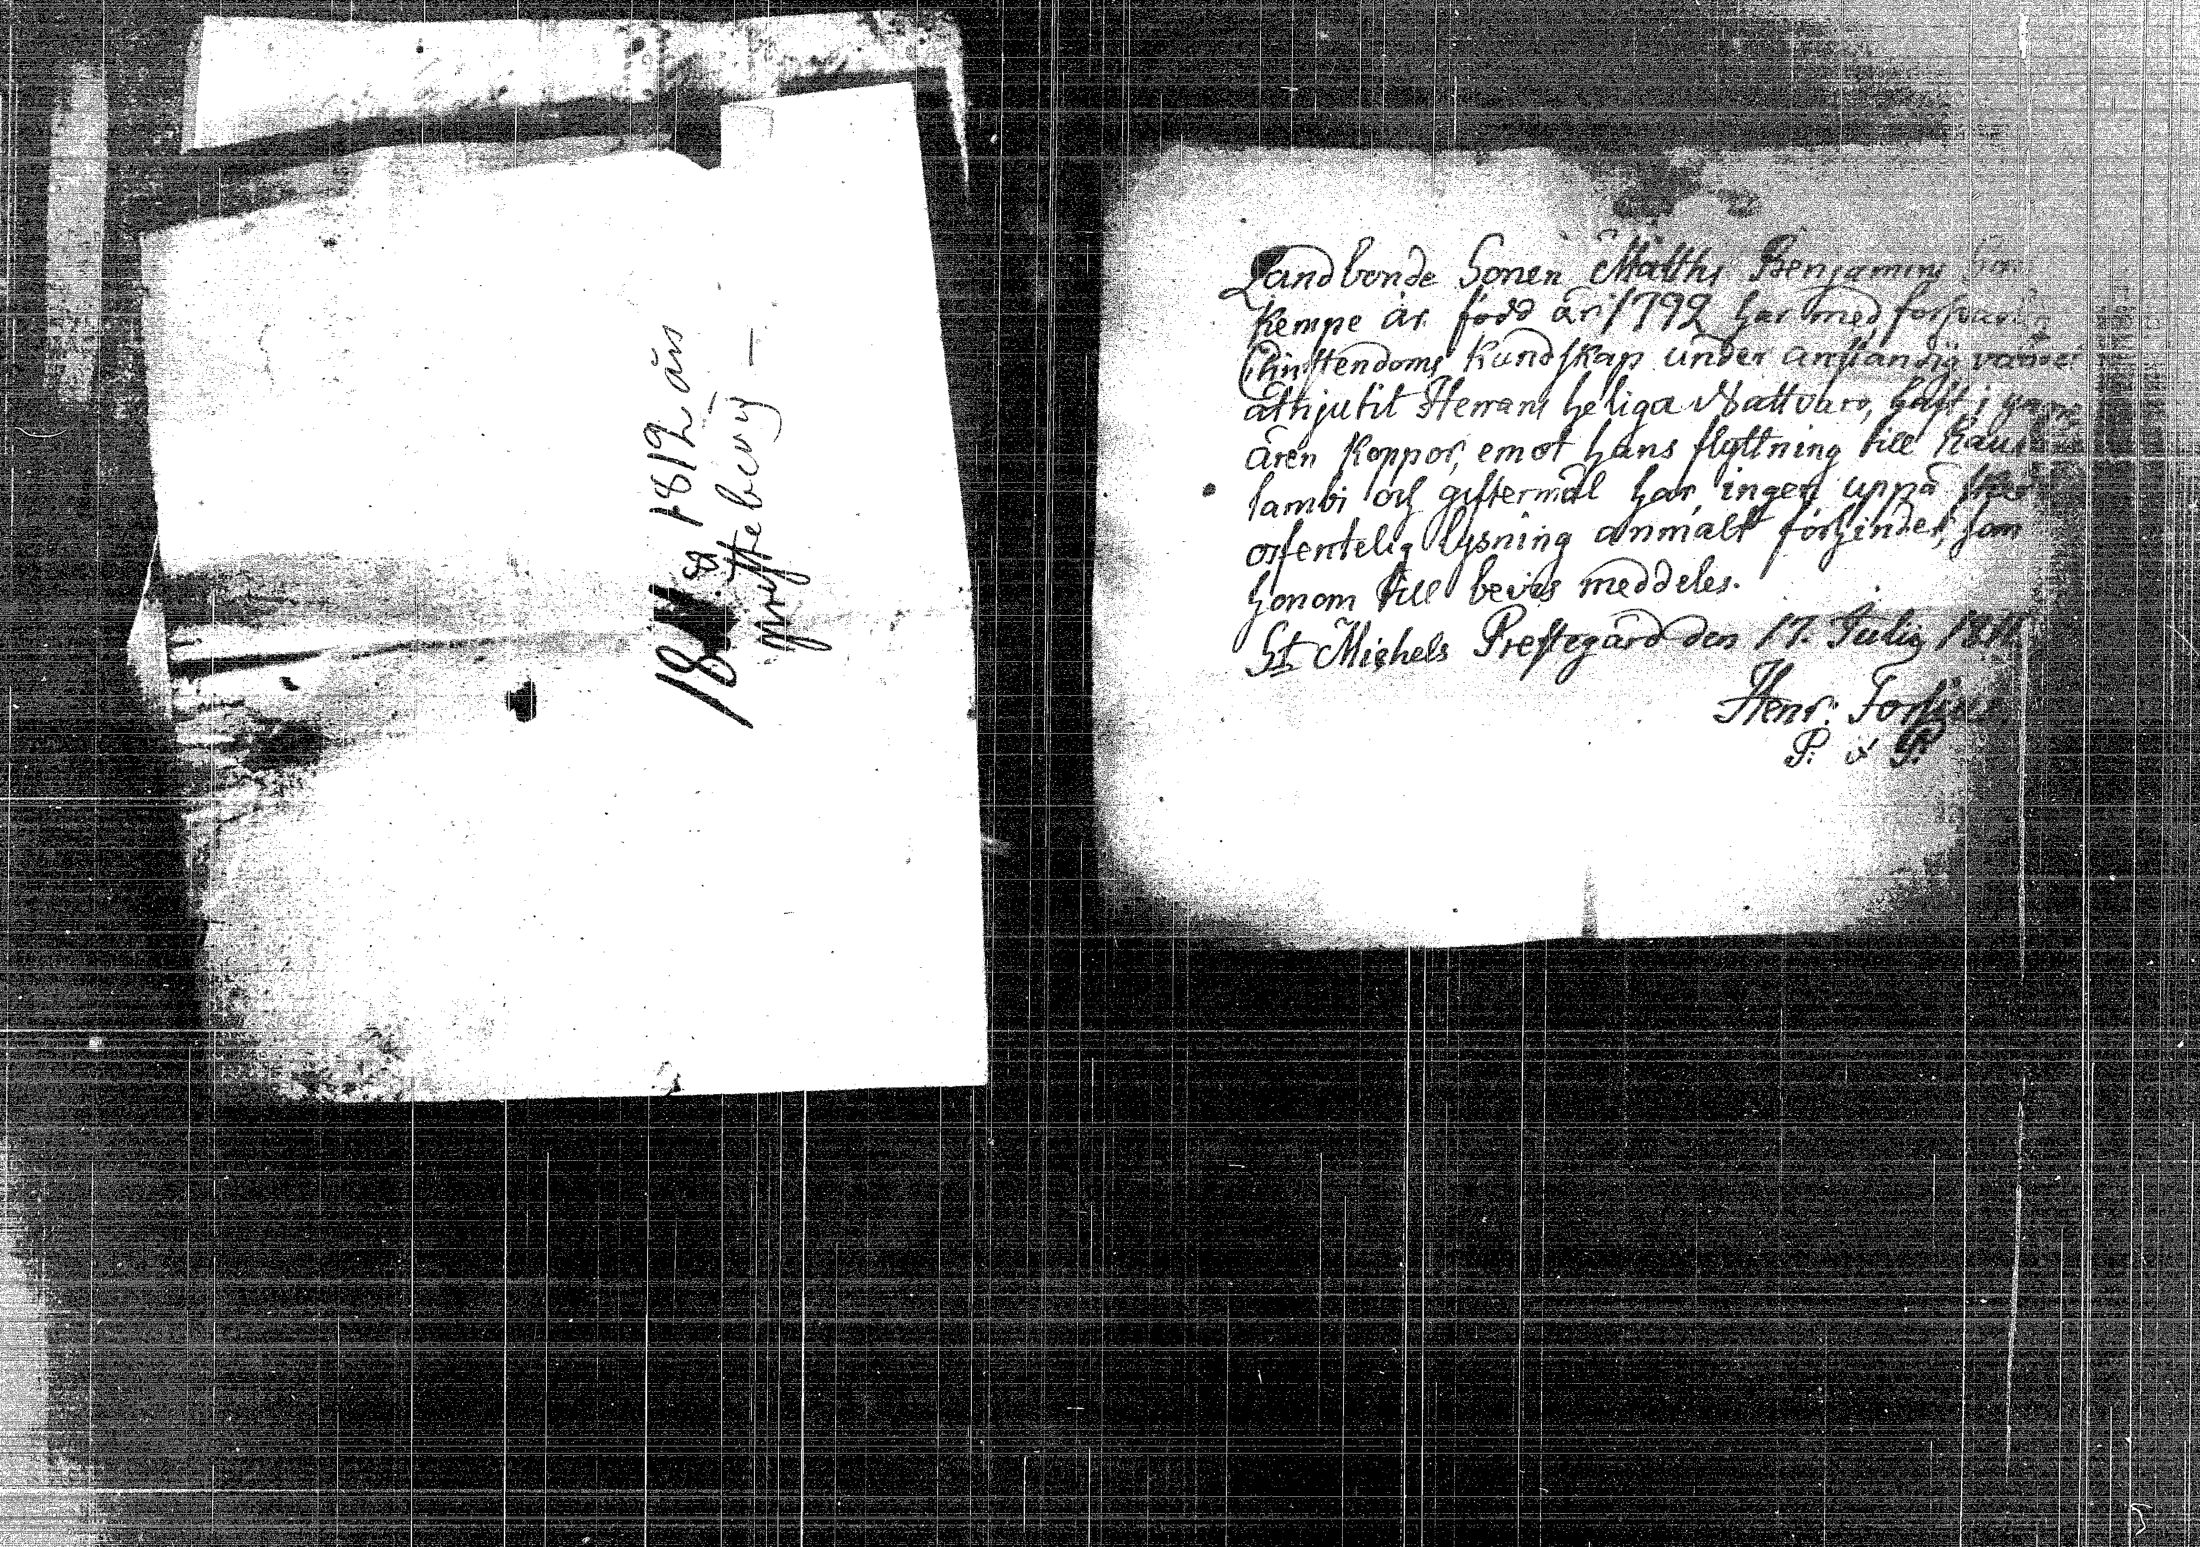 18 & 1812 års
prestebevij —
Landbonde Sonen Matths Benjamins Son
Kempe är född år 1792 har med försvarlig
Christendoms Kundskap under anständig vandel
åthjutit Herrans heliga Nattvard, haft i yngre
åren Koppor, emot hans flyttning till
lambi och giftermål har, ingen uppå skedd
offentelig lysning anmält förhinder, som
honom till bevis meddeles.
St Michels Prestegård den 17. Julii
Henr: Forsius.
P. &